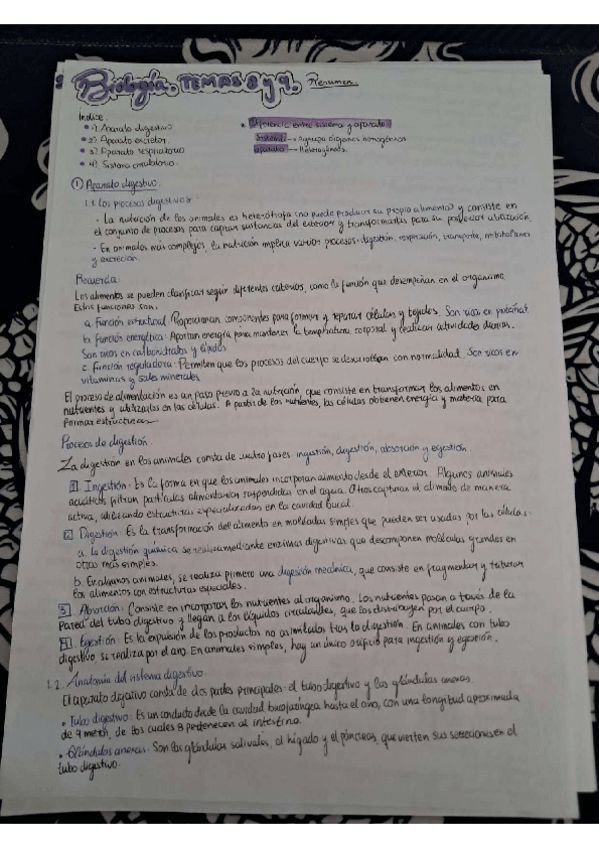 Biología. TEMAS 8 y 9. Resumen
Índice:
• 1) Aparato digestivo
• 2) Aparato excretor
• 3) Aparato respiratorio
• 4) Sistema circulatorio.
• Diferencia entre sistema y aparato
Sistema → Agrupa órganos homogéneos
aparato → Heterogéneos.
① Aparato digestivo.
1.1. Los procesos digestivos
- La nutrición de los animales es heterótrofa (no puede producir su propio alimento) y consiste en
el conjunto de procesos para captar sustancias del exterior y transformarlas para su posterior utilización.
- En animales más complejos, la nutrición implica varios procesos: digestión, respiración, transporte, metabolismo
y excreción.
Recuerda:
Los alimentos se pueden clasificar según diferentes criterios, como la función que desempeñan en el organismo.
Estas funciones son:
a. Función estructural: Proporcionan componentes para formar y reparar células y tejidos. Son ricos en proteínas.
b. Función energética: Aportan energía para mantener la temperatura corporal y realizar actividades diarias.
Son ricos en carbohidratos y lípidos
c. Función reguladora: Permiten que los procesos del cuerpo se desarrollen con normalidad. Son ricos en
vitaminas y sales minerales
El proceso de alimentación es un paso previo a la nutrición que consiste en transformar los alimentos en
nutrientes y utilizarlos en las células. A partir de los nutrientes, las células obtienen energía y materia para
formar estructuras.
Procesos de digestión:
La digestión en los animales consta de cuatro fases: ingestión, digestión, absorción y egestión.
1. Ingestión: Es la forma en que los animales incorporan alimento desde el exterior. Algunos animales
acuáticos filtran partículas alimentarias suspendidas en el agua. Otros capturan el alimento de manera
activa, utilizando estructuras especializadas en la cavidad bucal.
2. Digestión: Es la transformación del alimento en moléculas simples que pueden ser usadas por las células.
a. la digestión química se realiza mediante enzimas digestivas que descomponen moléculas grandes en
otras más simples.
b. En algunos animales, se realiza primero una digestión mecánica, que consiste en fragmentar y triturar
los alimentos con estructuras especiales.
3. Absorción: Consiste en incorporar los nutrientes al organismo. Los nutrientes pasan a través de la
pared del tubo digestivo y llegan a los líquidos circulantes, que los distribuyen por el cuerpo.
4. Egestión: Es la expulsión de los productos no asimilados tras la digestión. En animales con tubo
digestivo se realiza por el ano. En animales simples, hay un único orificio para ingestión y egestión.
1.2. Anatomía del sistema digestivo.
El aparato digestivo consta de dos partes principales: el tubo digestivo y las glándulas anexas.
• Tubo digestivo: Es un conducto desde la cavidad bucofaríngea hasta el ano, con una longitud aproximada
de 9 metros, de los cuales 8 pertenecen al intestino.
• Glándulas anexas: Son las glándulas salivales, el hígado y el páncreas, que vierten sus secreciones en el
tubo digestivo.